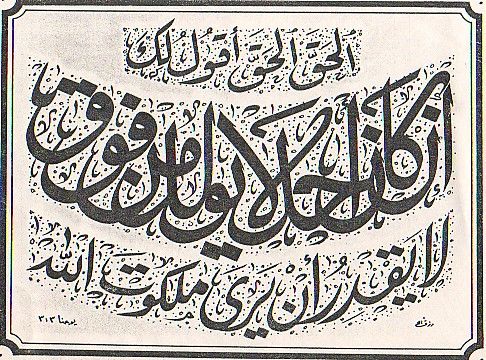 الحق الحق أقول لك
إن كان أحد لا يولد من فوق
لا يقدر أن يرى ملكوت الله
يوحنا ٣:٣